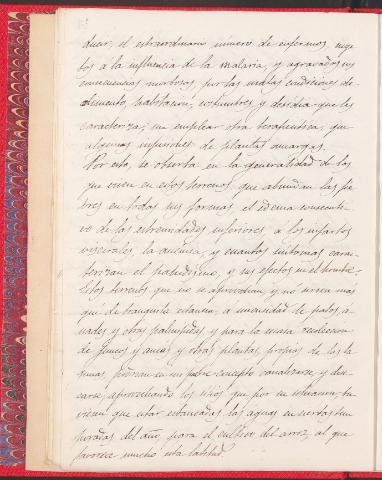 ducir, el extraordinario número de enfermos, suje
tos á la influencia de la malaria, y agravados sus
consecuencias morbosas, por las malas condiciones de
alimento, habitacion, costumbres y desidia que les
caracteriza; sin emplear otra terapéutica, que
algunas infusiones de plantas amargas.
Por esto, se observa en la generalidad de los
que viven en estos terrenos, que abundan las fie
bres en todas sus formas, el edema consecuti-
vo de las extremidades inferiores á los infartos
viscerales, la anemia, y cuantos sintomas carac-
terizan el paludismo, y sus efectos en el hombre.
Estos terrenos que no se aprovechan, y no sirven más
que de tranquila estancia, á de patos, á
nades y otras palmípedas, y para la escasa recoleccion
de juncos y aneas y otras plantas, propias de las la
gunas, podrian en mi pobre concepto canalizarse y dese
carse, aprovechando los sitios que por su situacion, tu
viesen que estar estancadas las aguas en ciertas tem
poradas del año, para el cultivo del arroz, al que
favorece mucho esta latitud.